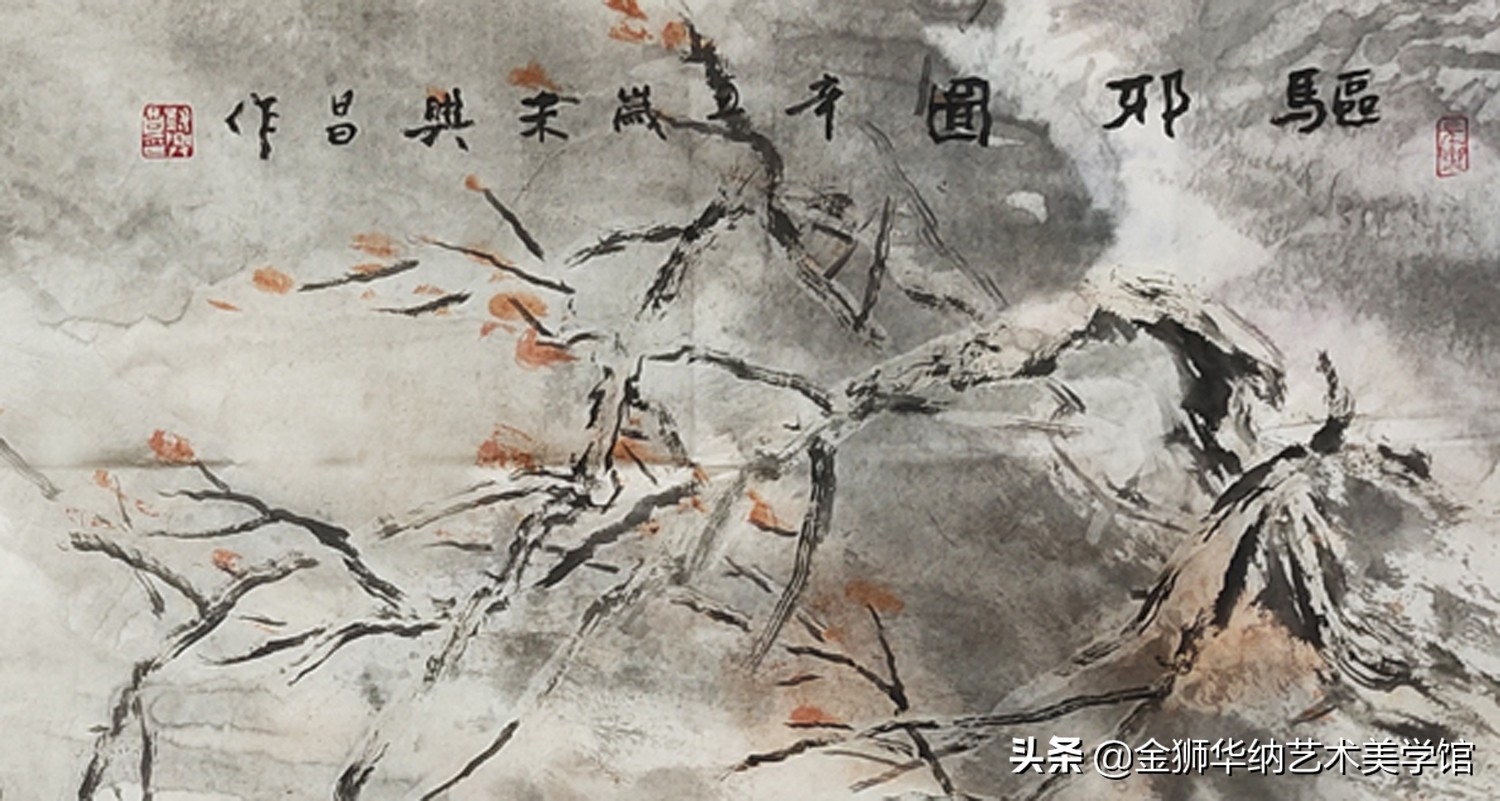 驅邪圖辛丑歲末興昌作
头条@金狮华纳艺术美学馆